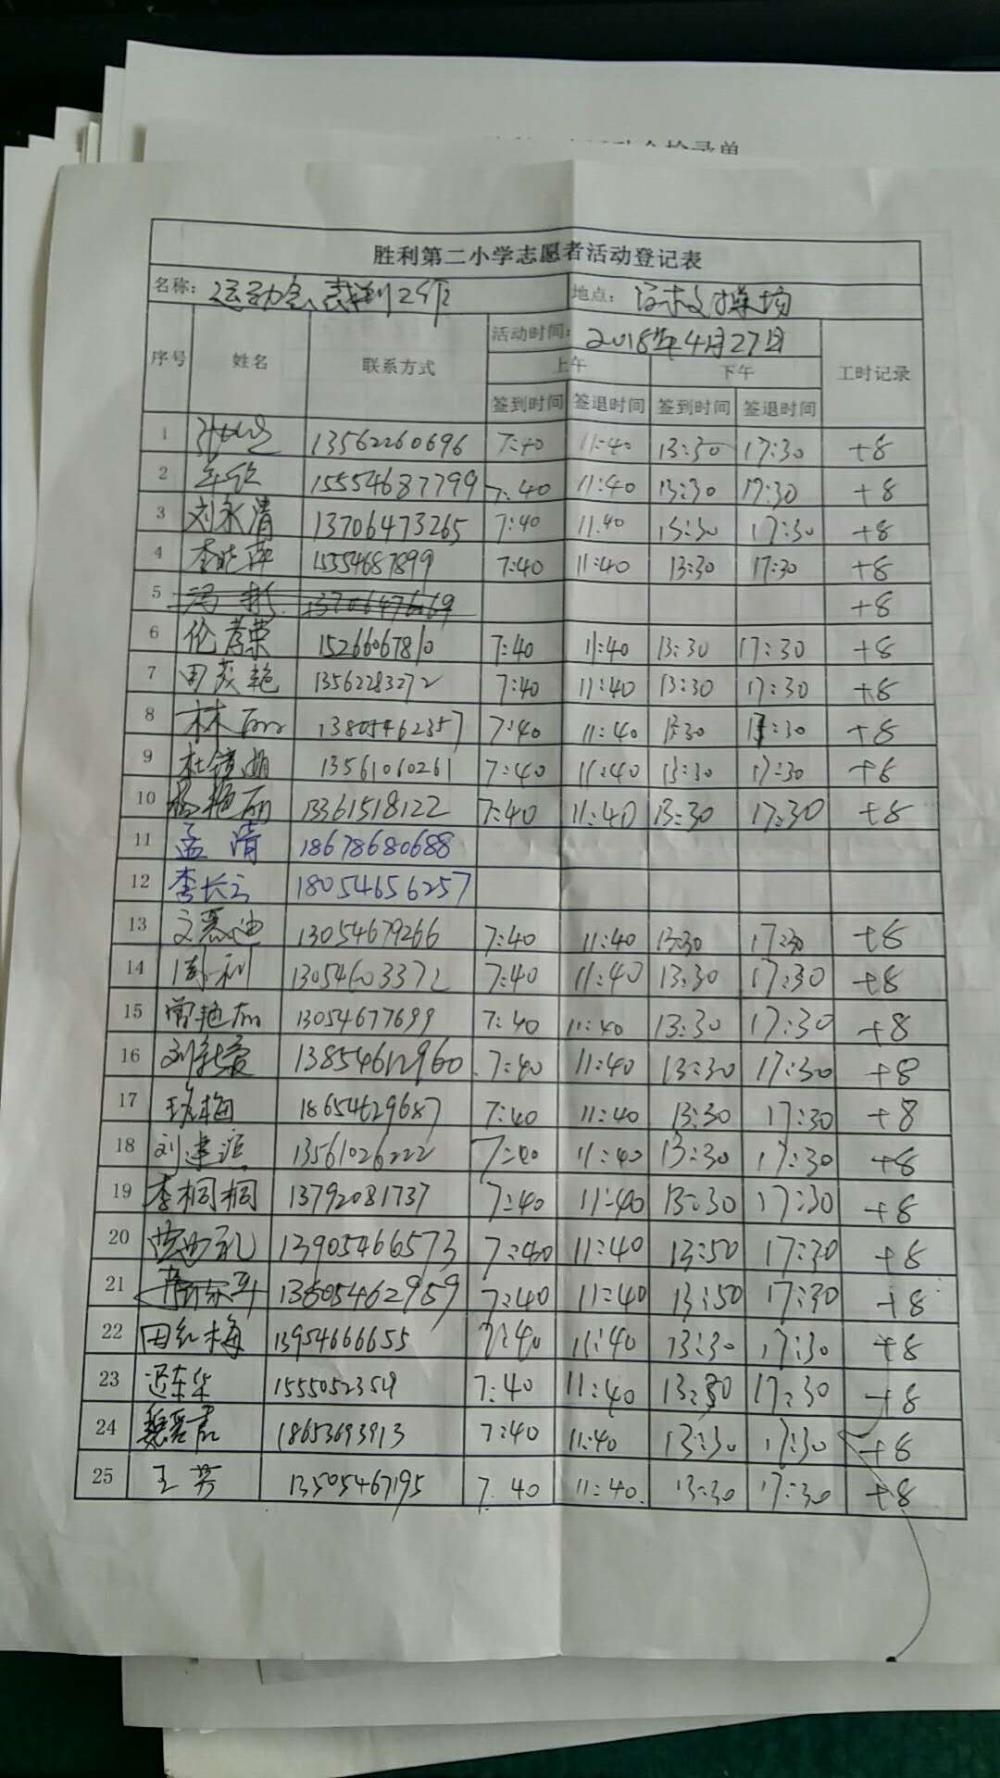 胜利第二小学志愿者活动登记表
名称: 运动会 裁判工作 地点:
序号 姓名 联系方式 活动时间: 2018年4月27日 工时记录
上午 下午
签到时间 签退时间 签到时间 签退时间
1 13562260696 7:40 11:40 13:30 17:30 +8
2 15554687799 7:40 11:40 13:30 17:30 +8
3 刘永清 13706473265 7:40 11:40 13:30 17:30 +8
4 李晓萍 15554687899 7:40 11:40 13:30 17:30 +8
5 冯 13706476169 +8
6 伦若荣 15266067810 7:40 11:40 13:30 17:30 +8
7 田茂艳 13562283272 7:40 11:40 13:30 17:30 +8
8 林丽 13805462357 7:40 11:40 13:30 17:30 +8
9 杜镜娟 13561060261 7:40 11:40 13:30 17:30 +8
10 杨艳丽 13361518122 7:40 11:40 13:30 17:30 +8
11 孟清 18678680688
12 李长云 18054656257
13 文惠迪 13054679266 7:40 11:40 13:30 17:30 +8
14 周利 13054603372 7:40 11:40 13:30 17:30 +8
15 常艳丽 13054677699 7:40 11:40 13:30 17:30 +8
16 刘 13854612960 7:40 11:40 13:30 17:30 +8
17 18654629687 7:40 11:40 13:30 17:30 +8
18 刘建派 13561026222 7:40 11:40 13:30 17:30 +8
19 李桐桐 13792081737 7:40 11:40 13:30 17:30 +8
20 13905466573 7:40 11:40 13:50 17:30 +8
21 13605462959 7:40 11:40 13:50 17:30 +8
22 田红梅 13954666655 7:40 11:40 13:30 17:30 +8
23 迟东华 7:40 11:40 13:30 17:30 +8
24 魏 18653693913 7:40 11:40 13:30 17:30 +8
25 王芳 13505467195 7:40 11:40 13:30 17:30 +8